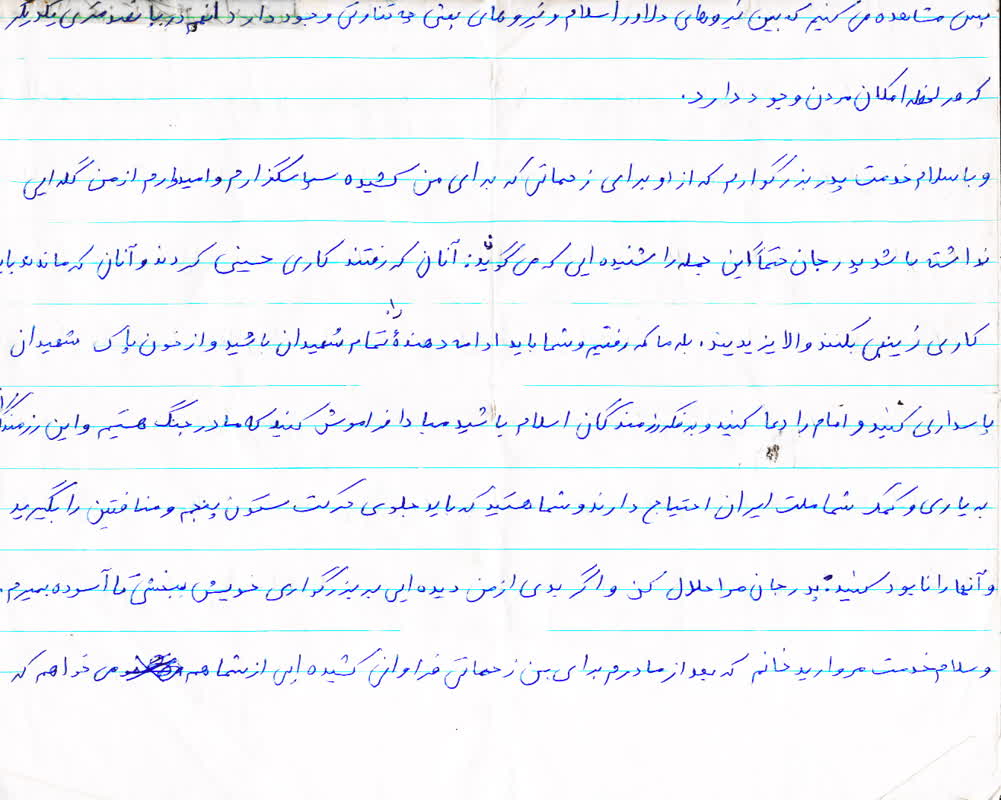 پس مشاهده می کنیم که بین نیروهای دلاور اسلام و نیروهای بعثی چه تفاوتی وجود دارد آنهم در پانصد متری یکدیگر
که هر لحظه امکان مردن وجود دارد.
و با سلام خدمت پدر بزرگوارم که از او برای زحماتی که برای من کشیده سپاسگذارم و امیدوارم از من گله ایی
نداشته باشد پدر جان حتماً این جمله را شنیده ایی که می گوید: آنان که رفتند کاری حسینی کردند و آنان که ماندند باید
کاری زینبی بکنند والا یزیدیند. بله ما که رفتیم و شما باید ادامه دهندهٔ راه تمام شهیدان باشید و از خون پاک شهیدان
پاسداری کنید و امام را دعا کنید و به فکر رزمندگان اسلام باشید مبادا فراموش کنید که ما در جنگ هستیم و این رزمندگان
به یاری و کمک شما ملت ایران احتیاج دارند و شما هستید که باید جلوی حرکت ستون پنجم و منافقین را بگیرید
و آنها را نابود کنید: پدر جان مرا حلال کن و اگر بدی از من دیده ایی به بزرگواری خویش ببخش تا آسوده بمیرم.
و سلام خدمت مروارید خانم که بعد از مادرم برای من زحماتی فراوانی کشیده ایی از شما هم می خواهم که